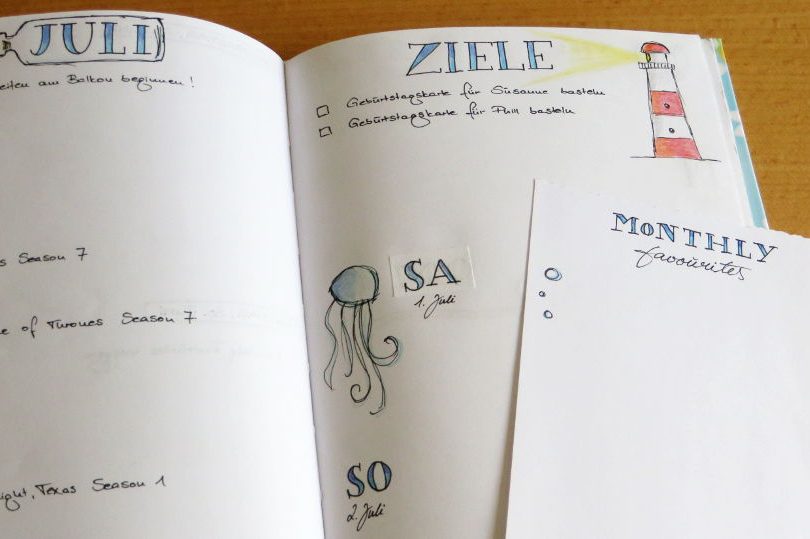 JULI
eiten am Balkon beginnen!
s Season 7
e of Thrones Season 7
ight, Texas Season 1
ZIELE
Geburtstagskarte für Susanne basteln
Geburtstagskarte für Phil basteln
SA
1. Juli
SO
2. Juli
MONTHLY
favourites